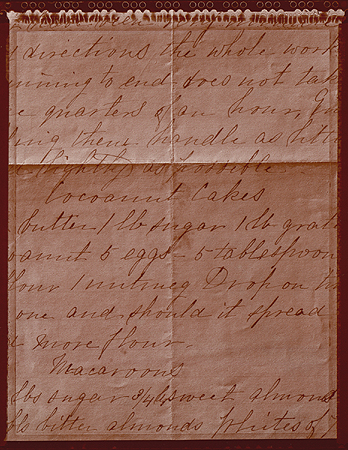 directions the whole work
nning to end does not tak
quarters of an hour, 
them handle as
lightly as possible
Cocoanut Cakes
butter 1 lb sugar 1 lb grat
oanut 5 eggs - 5 tablespoon
lour 1 nutmeg Drop on
one and should it spread
more flour.
Macaroons
lbs sugar 3/4 lb sweet almond
bitter almonds whites of